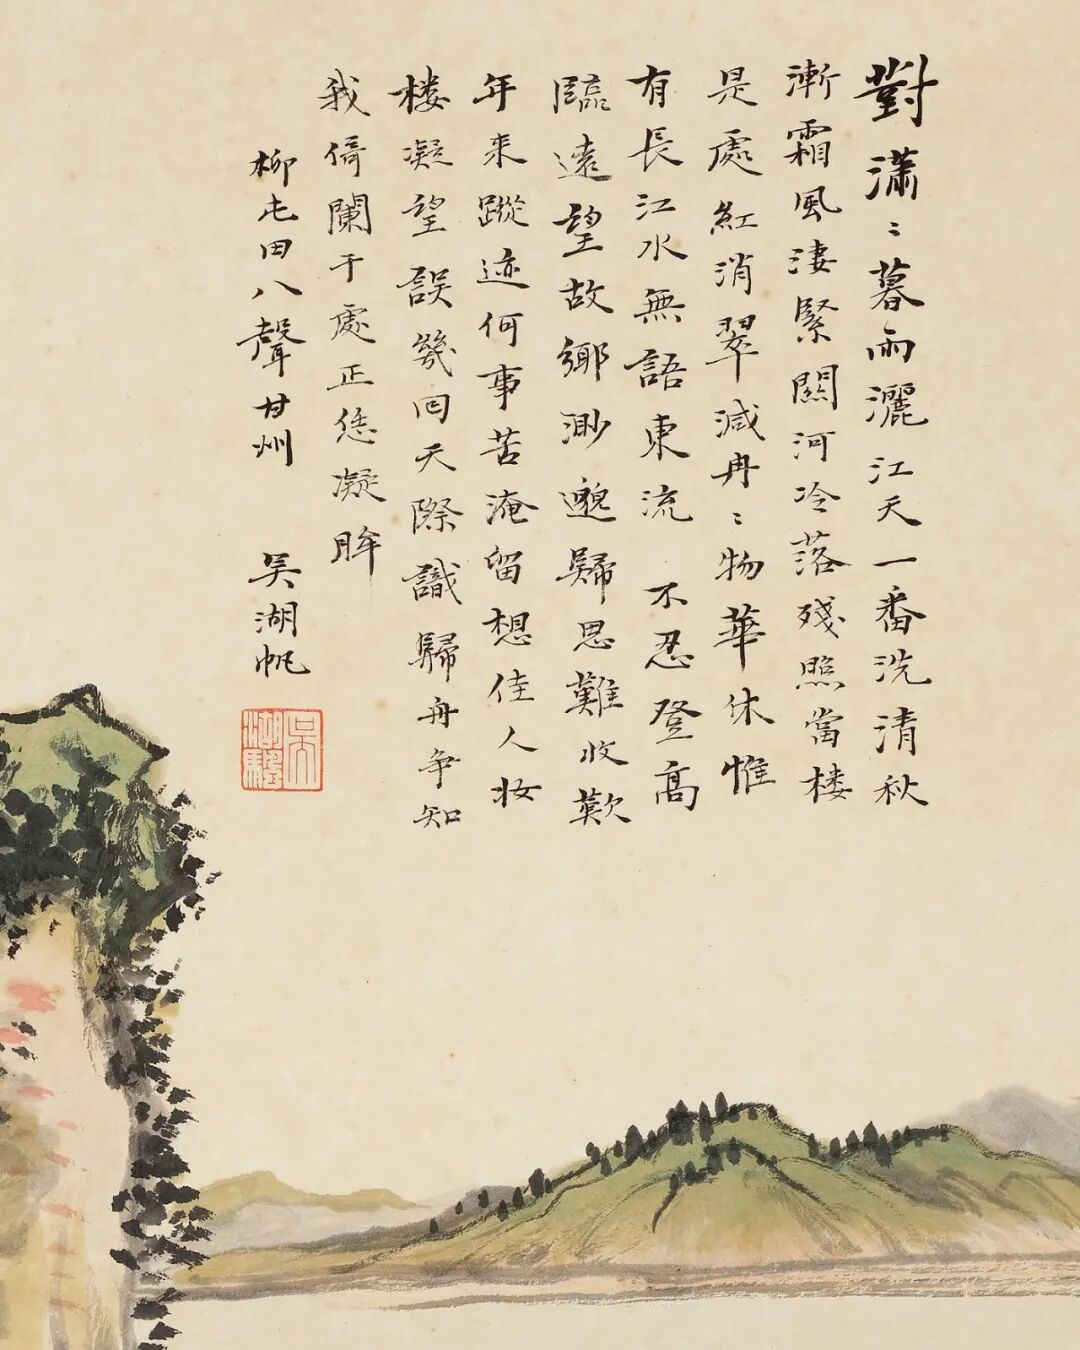 對瀟〻暮雨灑江天一番洗清秋
漸霜風淒緊關河冷落殘照當楼
是處紅消翠減冉〻物華休惟
有長江水無語東流 不忍登高
臨遠望故鄉渺邈歸思難收歎
年來蹤迹何事苦淹留想佳人妆
楼凝望誤幾回天際識歸舟争知
我倚闌干處正恁凝眸
柳屯田八聲甘州 吴湖帆
吳湖颿